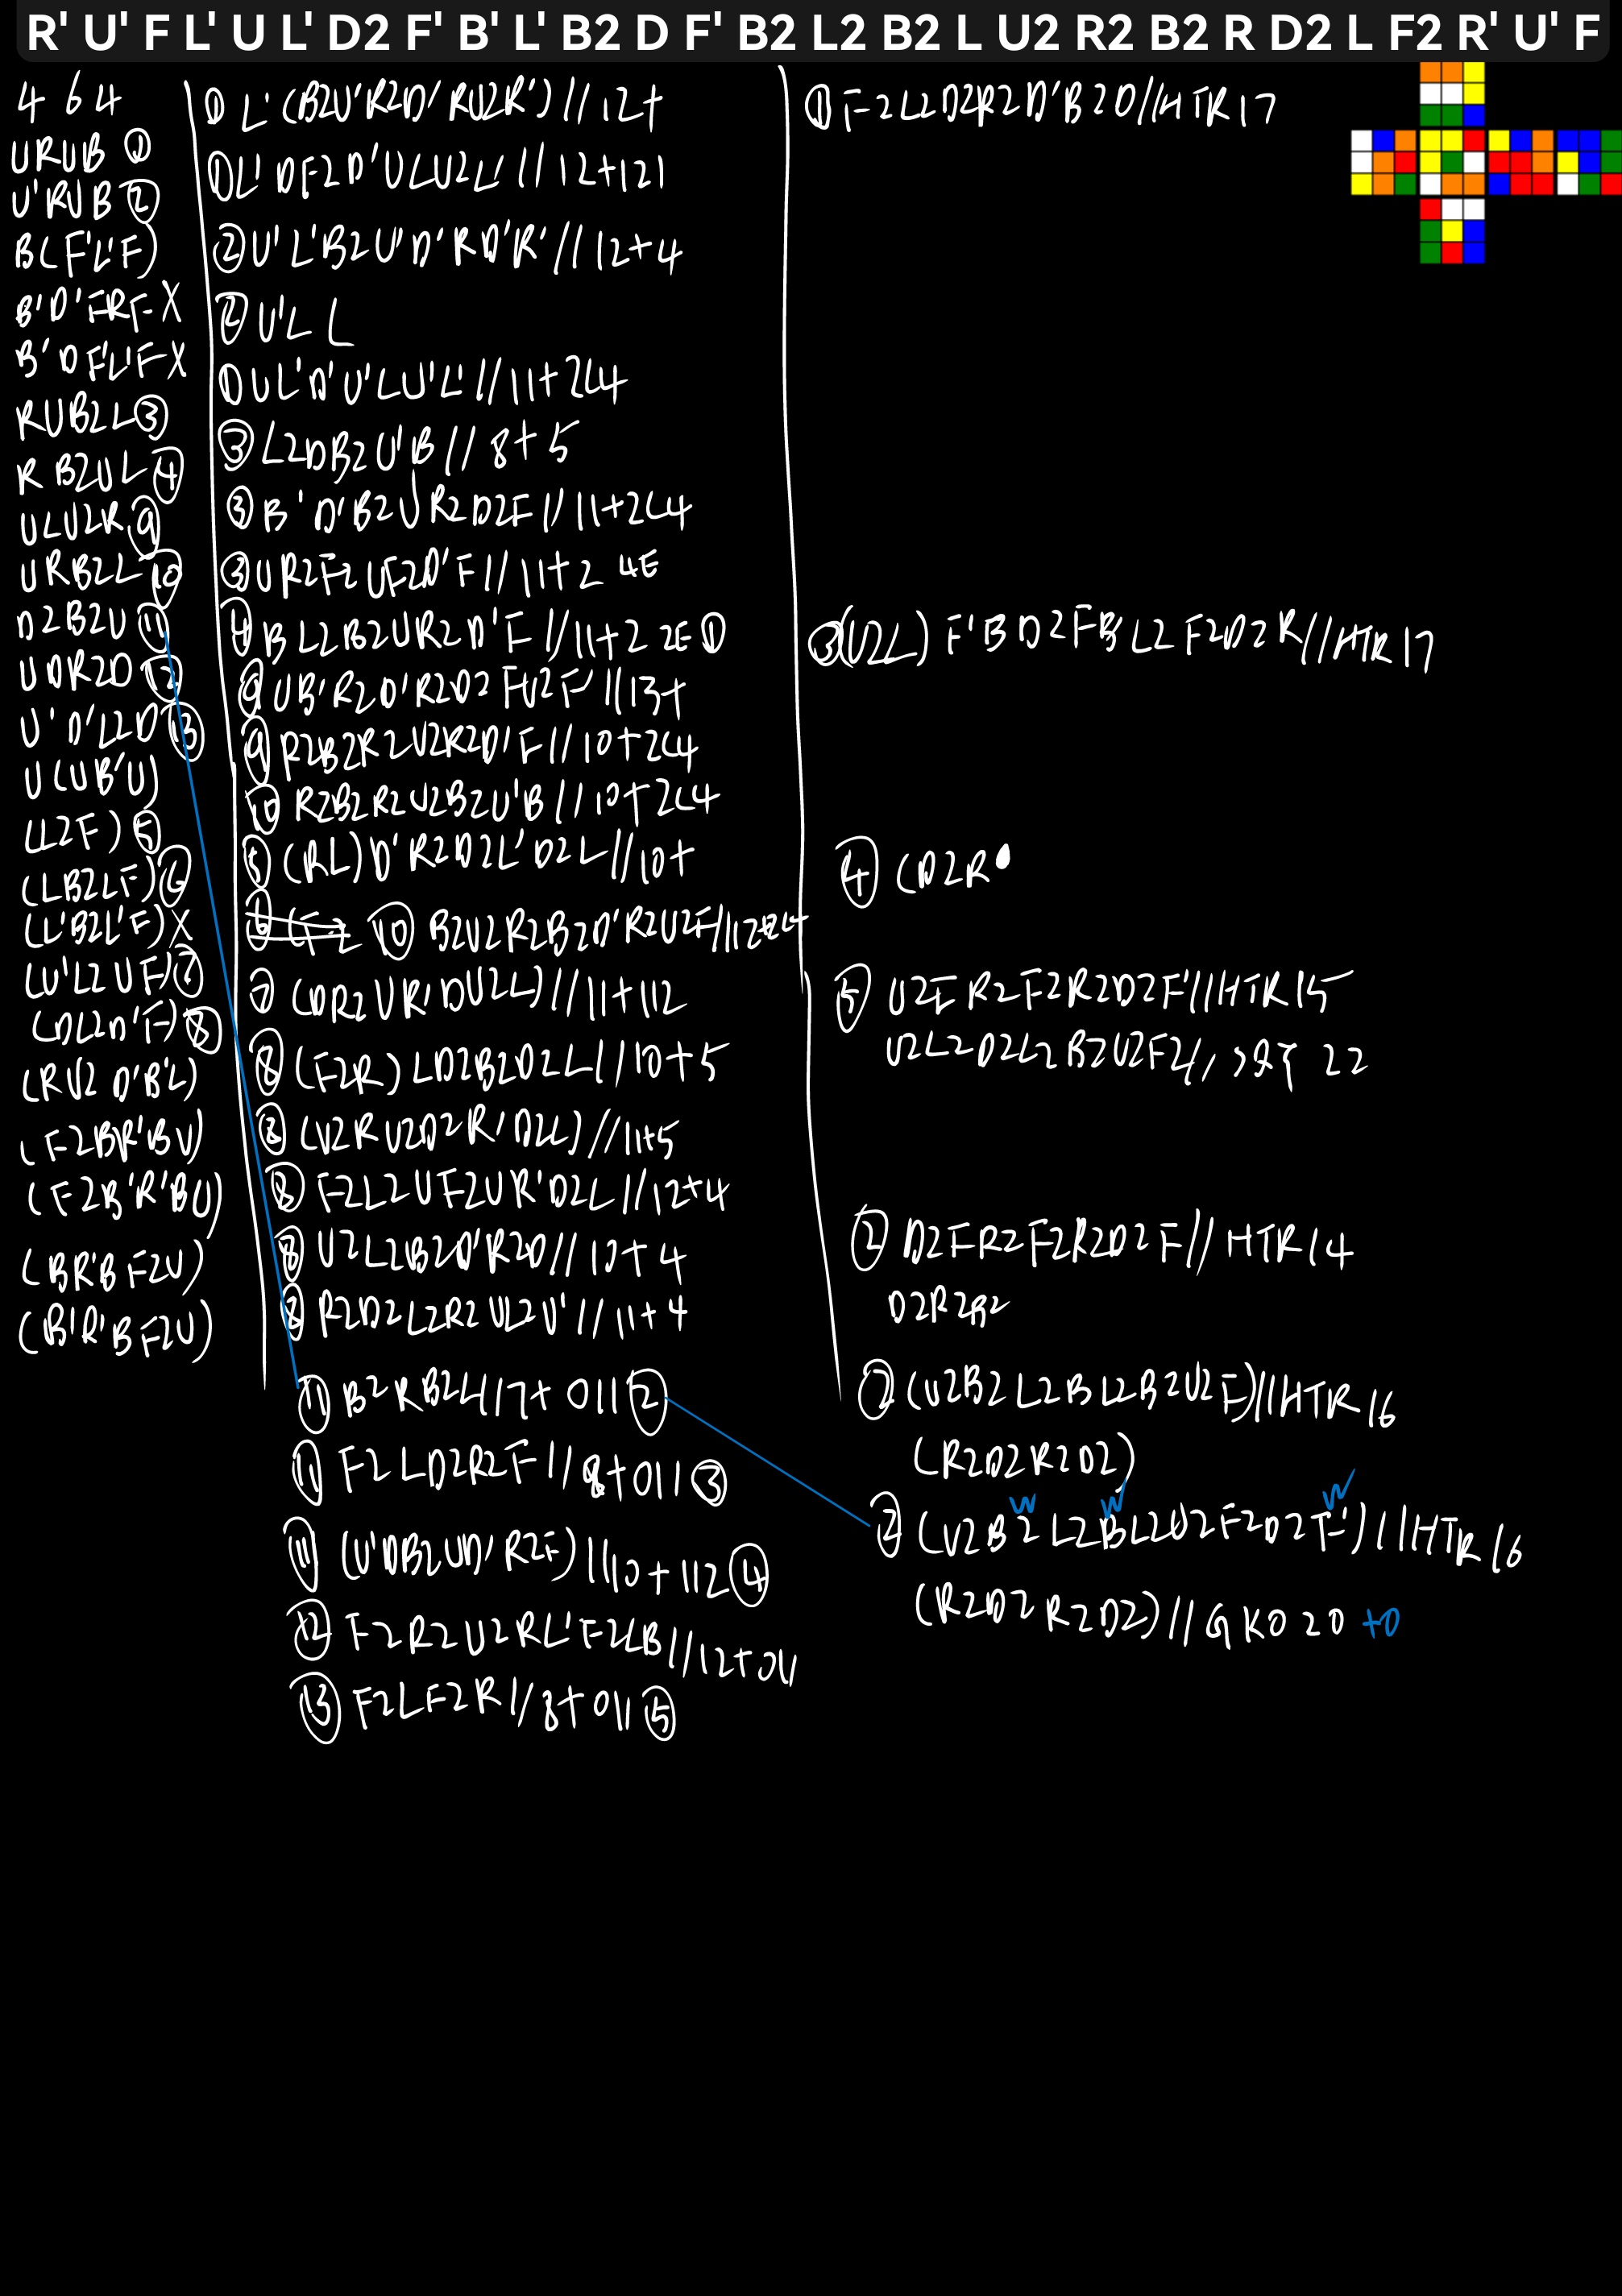 R' U' F L' U L' D2 F' B' L' B2 D F' B2 L2 B2 L U2 R2 B2 R D2 L F2 R' U' F
4 6 4
URUB ①
U'RUB ②
B(F'L'F)
B'D'FRF X
B'DF'L'F X
RUB2L ③
RB2UL ④
ULU2R ⑨
URB2L ⑩
D2B2U ⑪
UDR2D ⑫
U'D'L2D ⑬
U(UB'U)
(L2F) ⑤
(LB2LF) ⑥
(L'B2L'F) X
(U'L2UF) ⑦
(DL2D'F) ⑧
(RU2D'B'L)
(F2BR'BU)
(F2B'R'BU)
(BR'BF2U)
(B'R'BF2U)
① L'(B2U'R2D'RU2R')//12+
① L'DF2D'ULU2L'//12+121
② U'L'B2U'D'RD'R'//12+4
② U'LL
① UL'D'U'LU'L'//11+2C4
③ L2DB2U'B//8+5
③ B'D'B2UR2D2F//11+2C4
③ UR2F2UF2D'F//11+2 4E
④ BL2B2UR2D'F//11+2 2E ①
⑨ UB'R2D'R2D2FU2F'//13+
⑨ R2B2R2U2R2D'F//10+2C4
⑩ R2B2R2U2B2U'B//10+2C4
⑤ (RL)D'R2D2L'D2L//10+
⑩ B2U2R2B2D'R2U2F//12+2C4
⑦ (DR2UR'DU2L)//11+112
⑧ (F2R)LD2B2D2L//10+5
⑧ (U2RU2D2R'D2L)//11+5
⑧ F2L2UF2UR'D2L//12+4
⑧ U2L2B2D'R2D//10+4
⑧ R2D2L2R2UL2U'//11+4
⑪ B2RB2L//7+011 ②
⑪ F2LD2R2F//8+011 ③
⑪ (U'DB2UD'R2F)//10+112 ④
⑫ F2R2U2RL'F2LB//12+
⑬ F2LF2R//8+011 ⑤
① F2L2D2R2D'B2D//HTR17
③ (U2L)F'BD2FB'L2F2D2R//HTR17
④ (D2R
⑤ U2FR2F2R2D2F'//HTR15
U2L2D2L2B2U2F2// 22
② D2FR2F2R2D2F//HTR14
D2R2B2
② (U2B2L2BL2B2U2F)//HTR16
(R2D2R2D2)
② (U2B2L2BL2U2F2D2F')//HTR16
w w w
(R2D2R2D2)//GKO20 +0